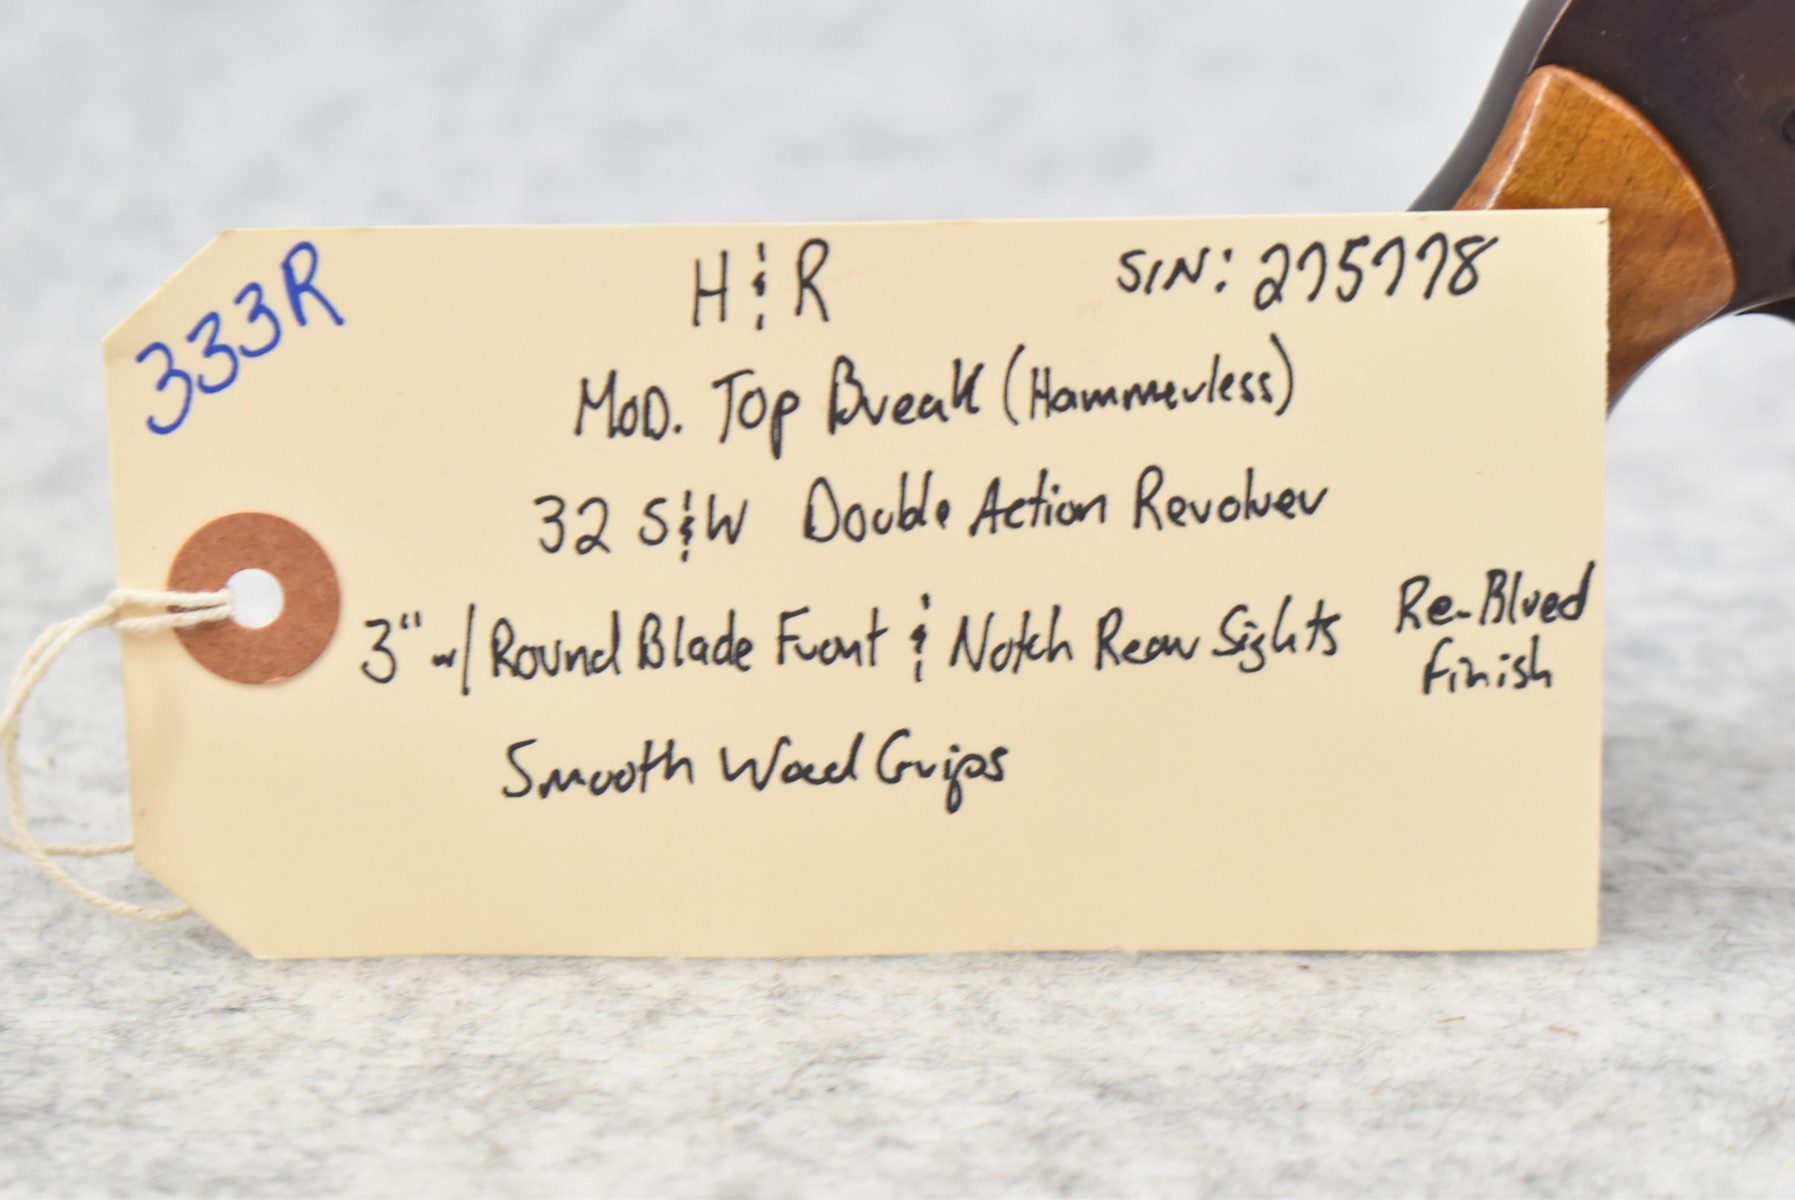 333R
H & R S/N: 275778
Mod. Top Break (Hammerless)
32 S&W Double Action Revolver
3" w/ Round Blade Front & Notch Rear Sights Re-Blued Finish
Smooth Wood Grips